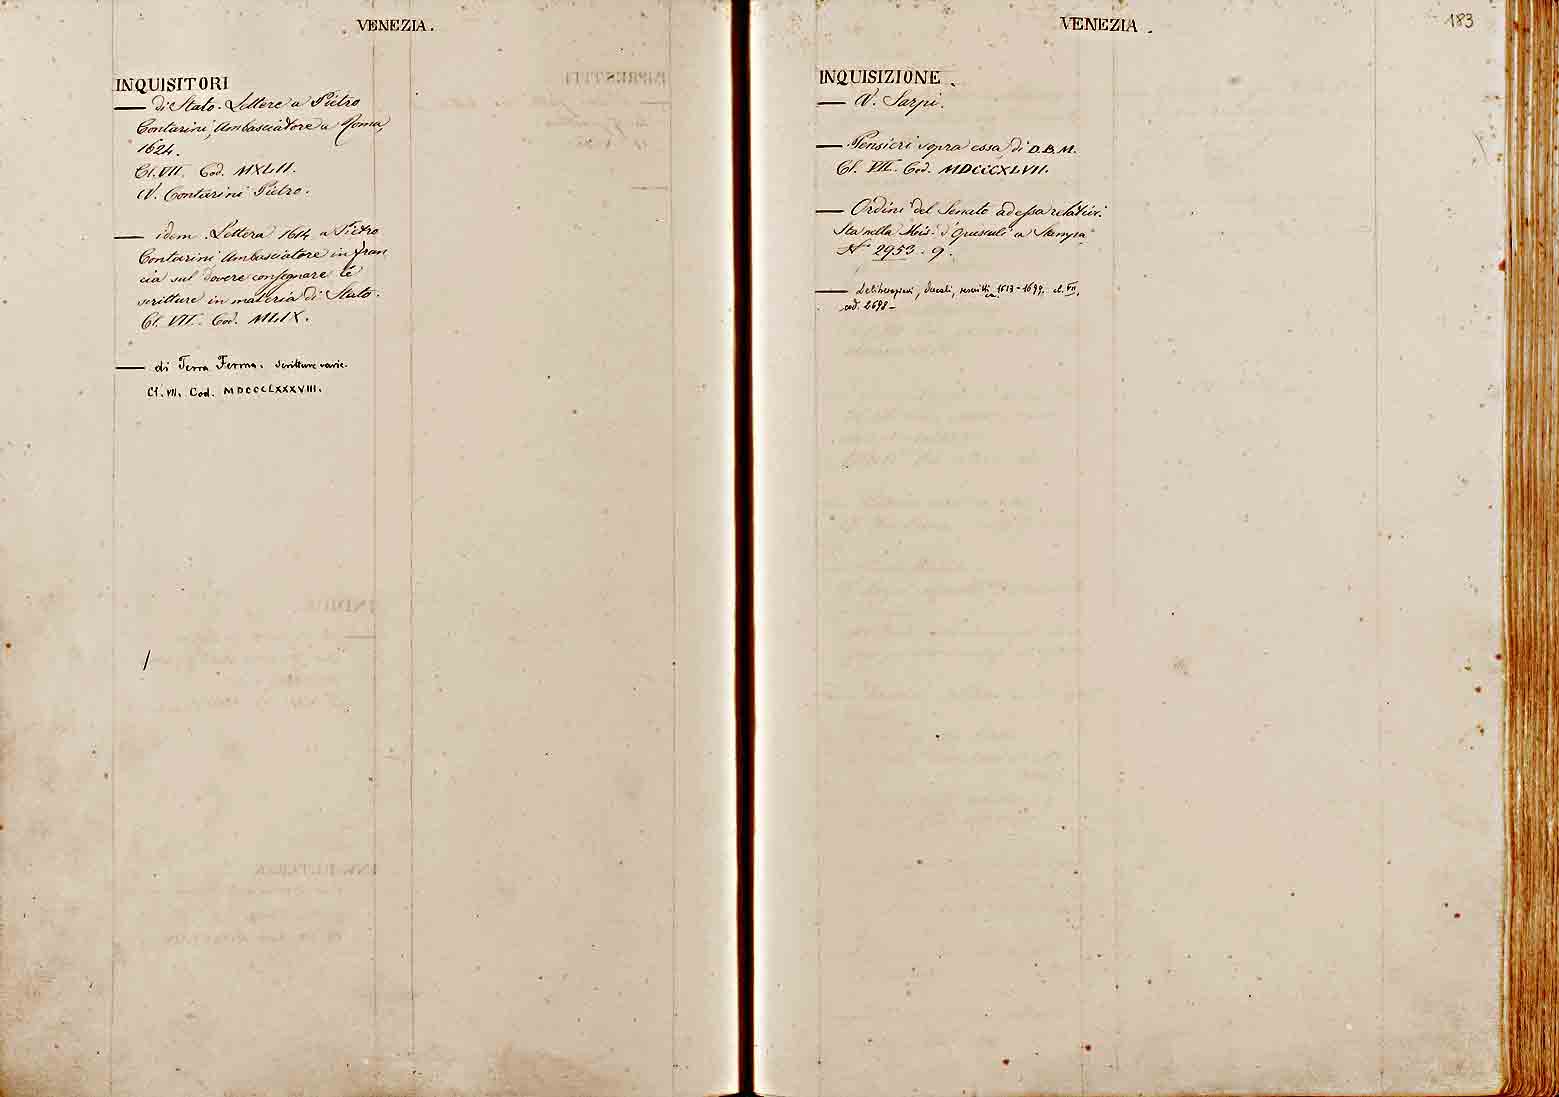 VENEZIA.
INQUISITORI
— di Stato. Lettere a Pietro
Contarini, Ambasciatore a Roma,
1624.
Cl. VII. Cod. MXLII.
V. Contarini Pietro.
— idem. Lettera 1614 a Pietro
Contarini Ambasciatore in Fran
cia sul dovere consegnare le
scritture in materia di Stato.
Cl. VII. Cod. MLIX.
— di Terra Ferma. Scritture varie.
Cl. VII. Cod. MDCCCLXXXVIII.
VENEZIA.
183
INQUISIZIONE.
— V. Sarpi.
— Pensieri sopra essa di D.B.M.
Cl. VII. Cod. MDCCCXLVII.
— Ordini del Senato ad essa relativi.
Sta nella Mis. d'Opuscoli a Stampa
N° 2953. 9.
— Deliberazioni, ducali, 1613-1699. cl. VII,
cod. 2698 –